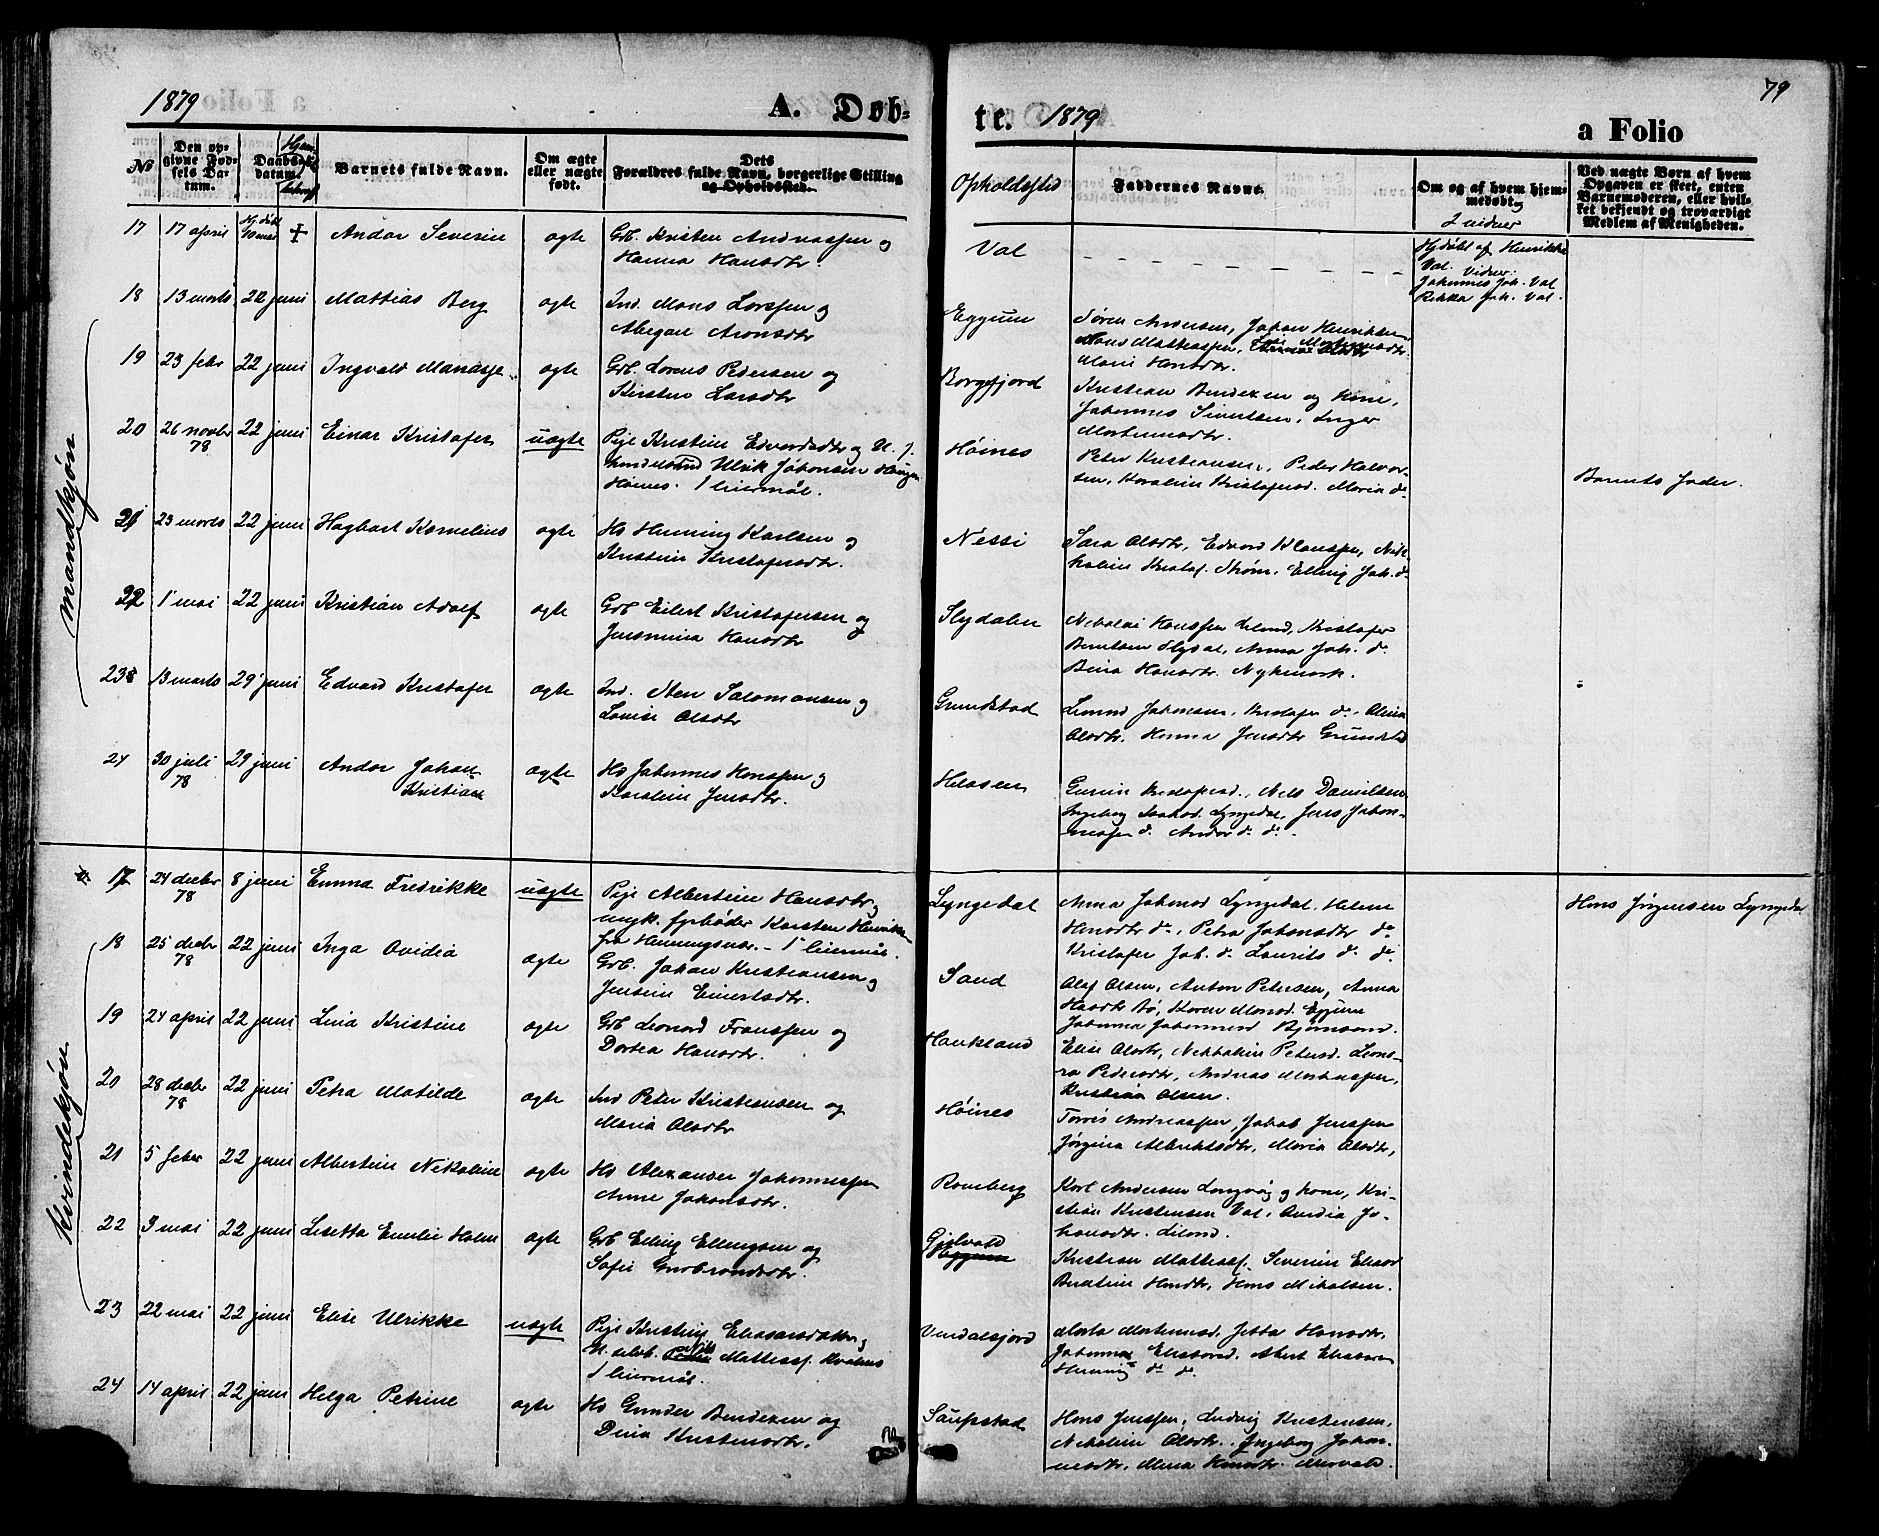 1879
A. Døb-
te.
1879
79
a Folio
No
Den op-
givne Fød-
sels Da-
tum.
Daabs-
datum.
Barnets fulde Navn.
Om ægte
eller uægte
født.
Dets
Forældres fulde Navn, borgerlige Stilling
og Opholdssted.
Opholdssted
Faddernes Navne.
Om og af hvem hjem-
medøbt og
2 vidner
Ved uægte Børn af hvem
Opgaven er skeet, enten
Barnemoderen, eller hvil-
ket bekjendt og troværdigt
Medlem af Menigheden.
mandkjøn
17 17 april Hj.døbt 10 mai + Andor Severin ægte Grb. Kristen Andreassen og
Hanna Hansdtr.
Val
Hj.døbt af Henrikke
Val. Vidner:
Johannes Joh. Val
Rikka Joh. Val.
18 13 marts 22 juni Mattias Berg ægte Ind. Mons Larssen og
Abigael Aronsdtr
Eggum
Søren Andersen, Johan Henriksen
Hans Mathiassen, Mortensdtr.
Marie Hansdtr.
19 23 febr 22 juni Ingvald Manasse ægte Grb. Lorens Pedersen og
Kirsten Larsdtr
Borgfjord
Kristian Bendixen og Kone,
Johannes Sivertsen, Inger
Mortensdtr.
20 26 novbr 78 22 juni Einar Kristofer uægte Pige Kristine Edvardsdtr og U. f.
Ulrik Johansen
Høines. 1 leiermål.
Høines
Peter Kristiansen, Peder Halvor-
sen, Karoline Kristofersd. Maria do
Barnets Fader.
21 23 marts 22 juni Hagbart Kornelius ægte Hs Henning Karlsen og
Kristine Kristofersdtr.
Nessi
Sara Olsdtr, Edvard Klaussen, Nik-
koline Kristof. Strøm, Elling Joh. do
22 1 mai 22 juni Kristian Adolf ægte Grb Eilert Kristofersen og
Jensmina Hansdtr
Slydalen
Nikolai Hanssen Lilund, Kristofer
Berntsen Slydal, Anna Joh. do
Bina Hansdtr. Nykmark.
23 13 marts 29 juni Edvard Kristofer ægte Ind. Sten Salomonsen og
Lovise Olsdtr
Grundstad
Leonard Johansen, Kristofer do. Olina
Olsdtr. Hanna Jensdtr Grundstad
24 30 juli 78 29 juni Andor Johan
Kristian
ægte Hs Johannes Hanssen og
Karoline Jensdtr.
Helosen
Gurine Kristofersd., Nels Danielsen
Ingeborg Isaksd. Lyngedal, Jens Johan-
nessen do. Andor do. do.
kvindekjøn
17 24 decbr 78 8 juni Emma Fredrikke uægte Pige Albertine Hansdtr og
ungk. fyrbøder Karsten Henriksen
fra Henningsvær. - 1 leiermål.
Lyngedal
Anna Johansd Lyngedal. Helene
Hansdtr do., Petra Johansdtr do
Kristofer Joh. do. Laurits do. do.
Hans Jørgensen Lyngedal
18 25 decbr 78 22 juni Inga Ovidia ægte Grb. Johan Kristiansen og
Jensine Einertsdtr.
Sand
Olaf Olsen, Anton Petersen, Anna
Hansdtr Bø, Karen Monsd. Eggum
Johanna Johannesd Bjørnsand.
19 24 april 22 juni Lina Kristine ægte Grb Leonard Franssen og
Dortea Hansdtr.
Haukland
Elise Olsdtr, Nikkoline Petersd. Leono-
ra Pedersdtr, Andreas Mortenssen,
Kristian Olsen.
20 28 decbr 78 22 juni Petra Matilde ægte Ind Peter Kristiansen og
Maria Olsdtr
Høines
Torris Andreassen, Jakob Jenssen
Jørgina Albriktsdtr, Maria Olsdtr,
21 5 febr 22 juni Albertine Nikoline ægte Hs Alexander Johannessen
Anne Johansdtr.
Ramberg
Karl Andersen Langvåg og kone, Kri-
stian Kristensen Val, Ovedia Jo-
hansdtr. Lilund.
22 3 mai 22 juni Lisetta Emilie Holm ægte Grb Elling Ellingsen og
Sofie Gudbrandsdtr.
Gjelvold
Eggum
Kristian Mathiass. Severine Eliasd
Berntine Hansdtr, Hans Mikalsen.
23 22 mai 22 juni Elise Ulrikke uægte Pige Kristine Eliasarsdatter og
Nils Mattiass. Kvalnes
1 leiermål.
Vendalsjord
Marta Mortensd. Jetta Hansdtr,
Johanna Eliasarsd. Albert Eliasarsen
Henning do do.
24 14 april 22 juni Helga Petrine ægte Hs Gunder Bendixen og
Dina Kristensdtr.
Saupstad
Hans Jenssen, Ludvig Kristensen,
Nikoline Olsdtr. Ingeborg Johan-
nesdtr, Maria Hansdtr.